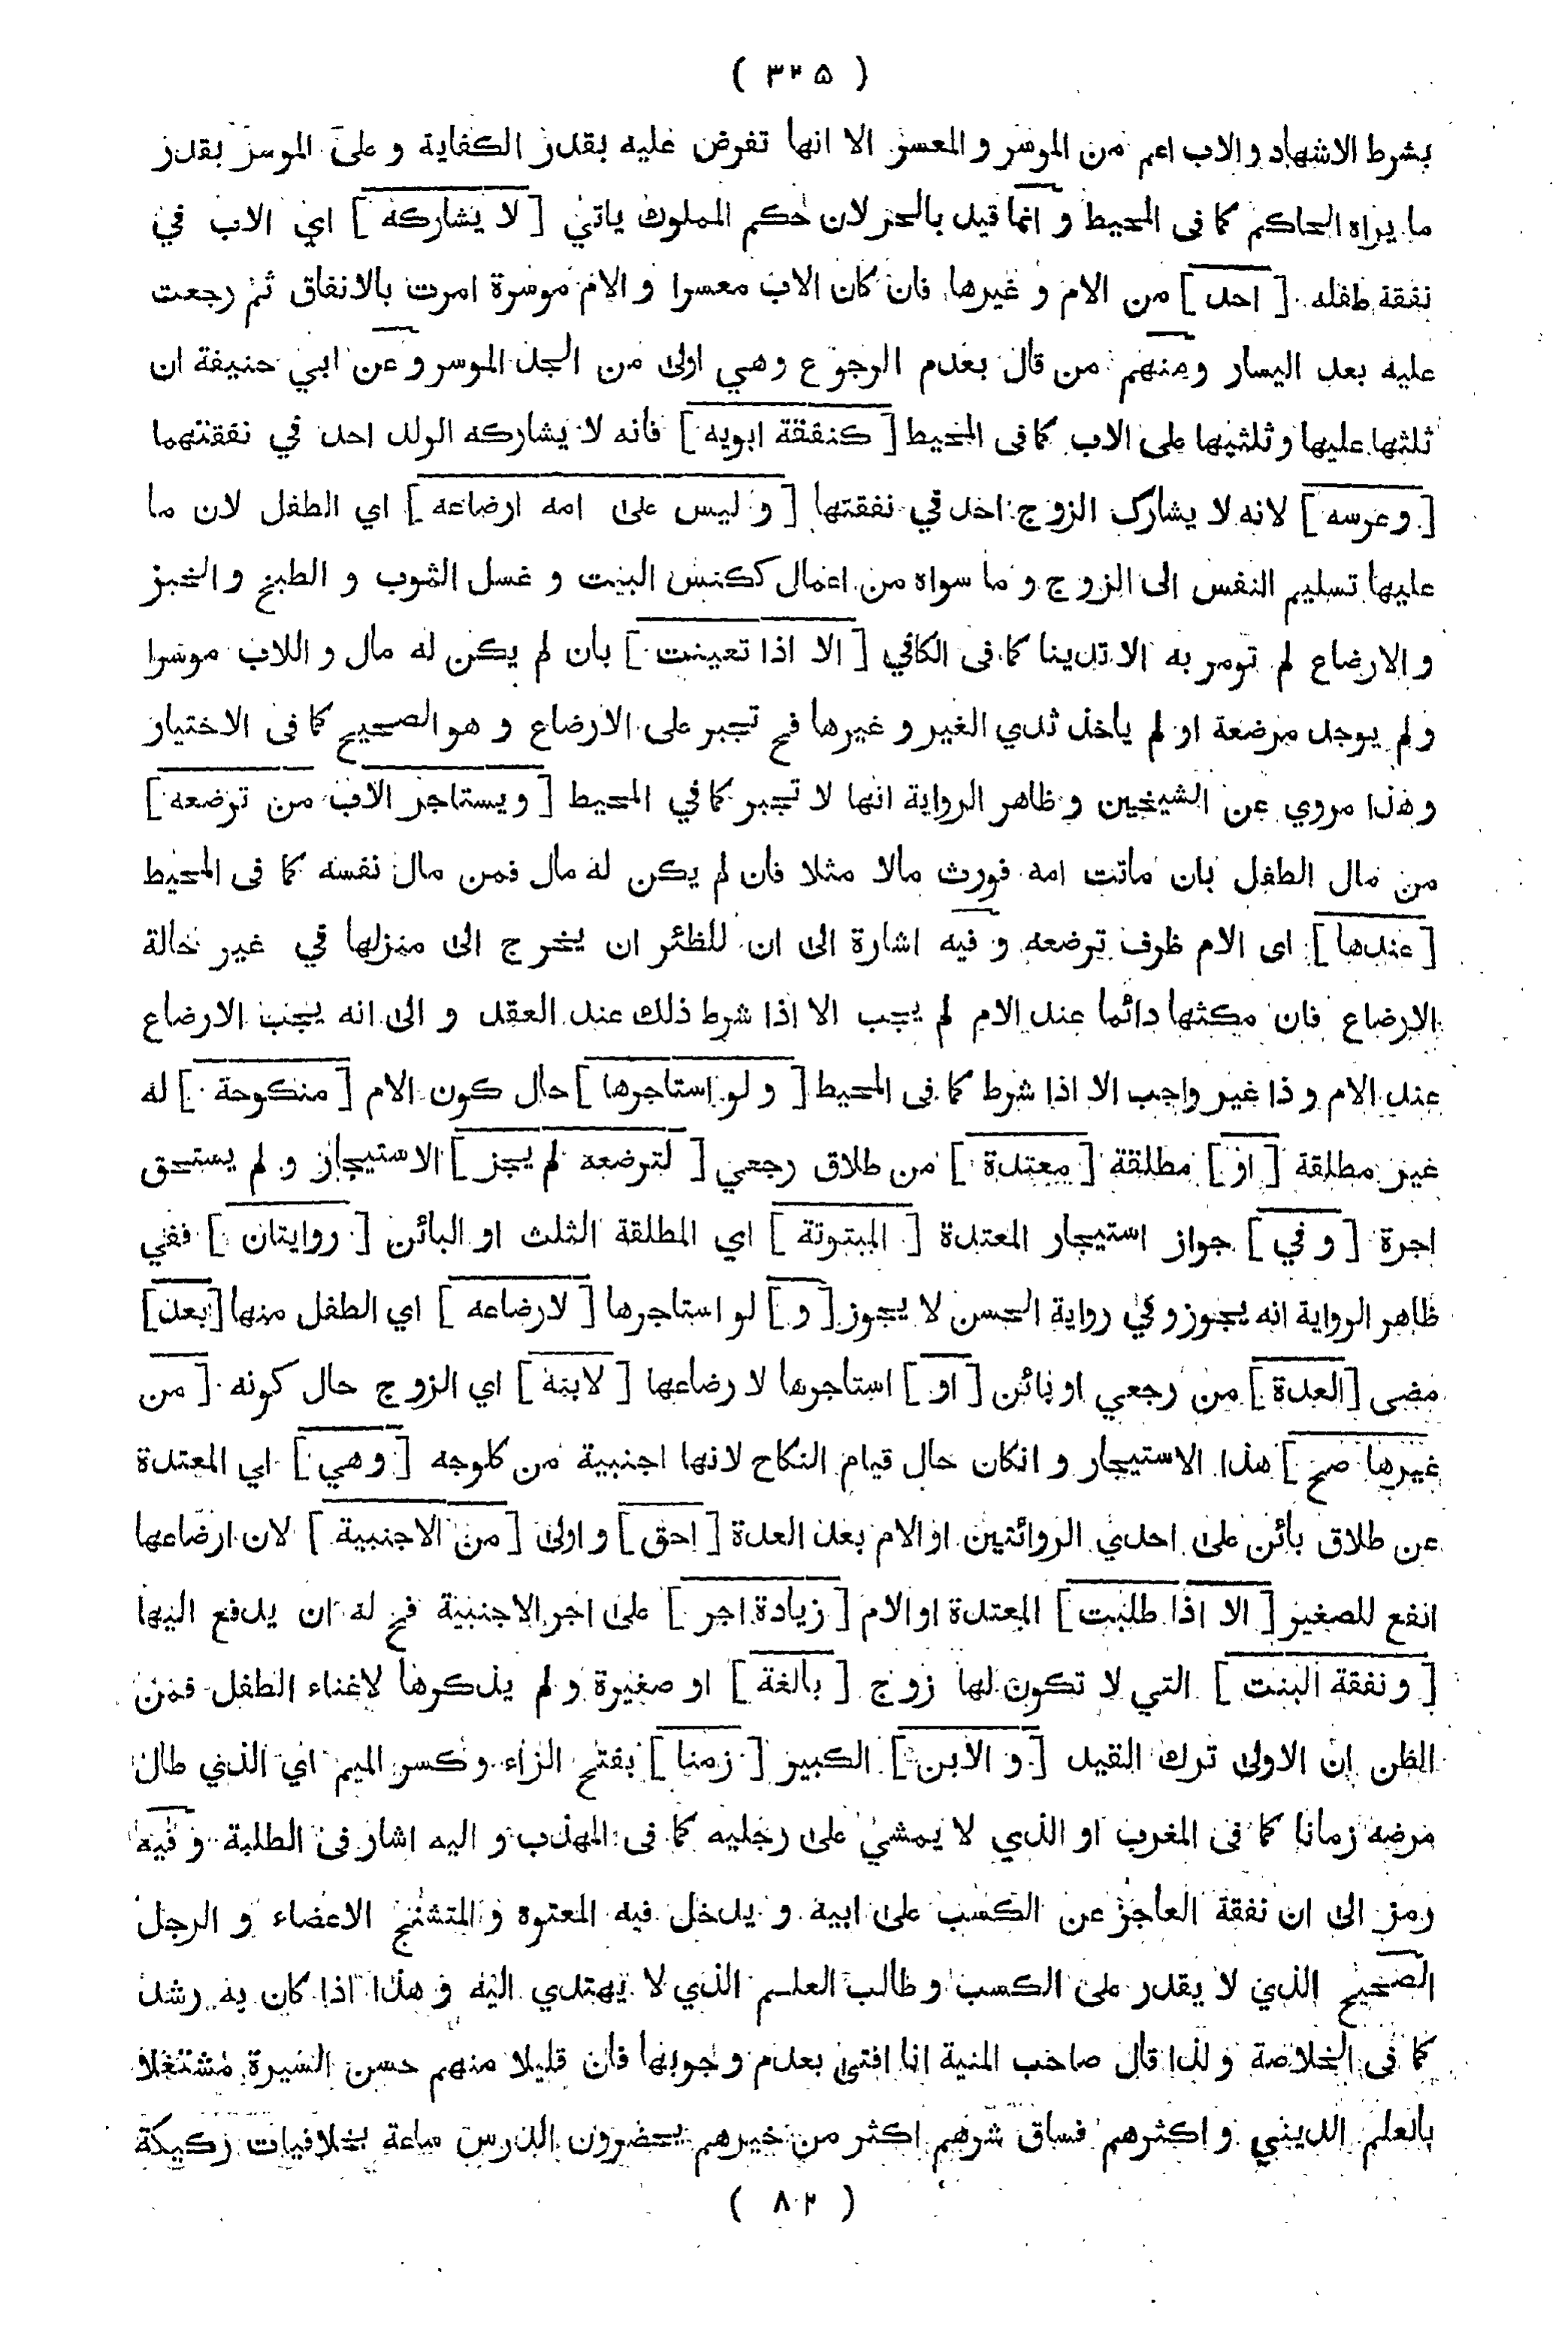 ( ٣٢٥ )
بشرط الاشهاد والاب اعم من الموسر و المعسر الا انها تفرض عليه بقدر الكفاية و على الموسر بقدر
ما يراه الحاكم كما فى المحيط و انما قيد بالحر لان حكم المملوك ياتي [ لا يشاركه ] اي الاب في
نفقة طفله [ احد ] من الام و غيرها فان كان الاب معسرا و الام موسرة امرت بالانفاق ثم رجعت
عليه بعد اليسار ومنهم من قال بعدم الرجوع وهي اولى من الجد الموسر و عن ابي حنيفة ان
ثلثها عليها و ثلثيها على الاب كما فى المحيط [ كنفقة ابويه ] فانه لا يشاركه الولد احد في نفقتهما
[ وعرسه ] لانه لا يشارك الزوج احد في نفقتها [ و ليس على امه ارضاعه ] اي الطفل لان ما
عليها تسليم النفس الى الزوج و ما سواه من اعمال ككنس البيت و غسل الثوب و الطبخ و الخبز
و الارضاع لم تومر به الا تدينا كما فى الكافي [ الا اذا تعينت ] بان لم يكن له مال و اللاب موسرا
و لم يوجد مرضعة او لم ياخذ ثدي الغير و غيرها فح تجبر على الارضاع و هو الصحيح كما فى الاختيار
و هذا مروي عن الشيخين و ظاهر الرواية انها لا تجبر كما في المحيط [ و يستاجر الاب من ترضعه ]
من مال الطفل بان ماتت امه فورث مالا مثلا فان لم يكن له مال فمن مال نفسه كما فى المحيط
[ عندها ] اى الام ظرف ترضعه و فيه اشارة الى ان للظئر ان يخرج الى منزلها في غير حالة
الارضاع فان مكثها دائما عند الام لم يجب الا اذا شرط ذلك عند العقد و الى انه يجب الارضاع
عند الام و ذا غير واجب الا اذا شرط كما فى المحيط [ و لو استاجرها ] حال كون الام [ منكوحة ] له
غير مطلقة [ او ] مطلقة [ معتدة ] من طلاق رجعي [ لترضعه لم يجز ] الاستيجار و لم يستحق
اجرة [ و في ] جواز استيجار المعتدة [ المبتوتة ] اي المطلقة الثلث او البائن [ روايتان ] ففي
ظاهر الرواية انه يجوز و في رواية الحسن لا يجوز [ و ] لو استاجرها [ لارضاعه ] اي الطفل منها [ بعد ]
مضى [ العدة ] من رجعي او بائن [ او ] استاجرها لا رضاعها [ لابنه ] اي الزوج حال كونه [ من
غيرها صح ] هذا الاستيجار و انكان حال قيام النكاح لانها اجنبية من كلوجه [ وهي ] اي المعتدة
عن طلاق بائن على احدي الروائتين او الام بعد العدة [ احق ] و اولى [ من الاجنبية ] لان ارضاعها
انفع للصغير [ الا اذا طلبت ] المعتدة او الام [ زيادة اجر ] على اجر الاجنبية فح له ان يدفع اليها
[ و نفقة البنت ] التي لا تكون لها زوج [ بالغة ] او صغيرة و لم يذكرها لاغناء الطفل فمن
الظن ان الاولى ترك القيد [ و الابن ] الكبير [ زمنا ] بفتح الزاء و كسر الميم اي الذي طال
مرضه زمانا كما فى المغرب او الذي لا يمشي على رجليه كما فى المهذب و اليه اشار فى الطلبة و فيه
رمز الى ان نفقة العاجز عن الكسب على ابيه و يدخل فيه المعتوه و المتشنج الاعضاء و الرجل
الصحيح الذي لا يقدر على الكسب و طالب العلم الذي لا يهتدي اليه و هذا اذا كان به رشد
كما فى الخلاصة و لذا قال صاحب المنية انا افتى بعدم وجوبها فان قليلا منهم حسن السيرة مشتغلا
بالعلم الديني و اكثرهم فساق شرهم اكثر من خيرهم يحضرون الدرس ساعة بخلافيات ركيكة
( ٨٢ )